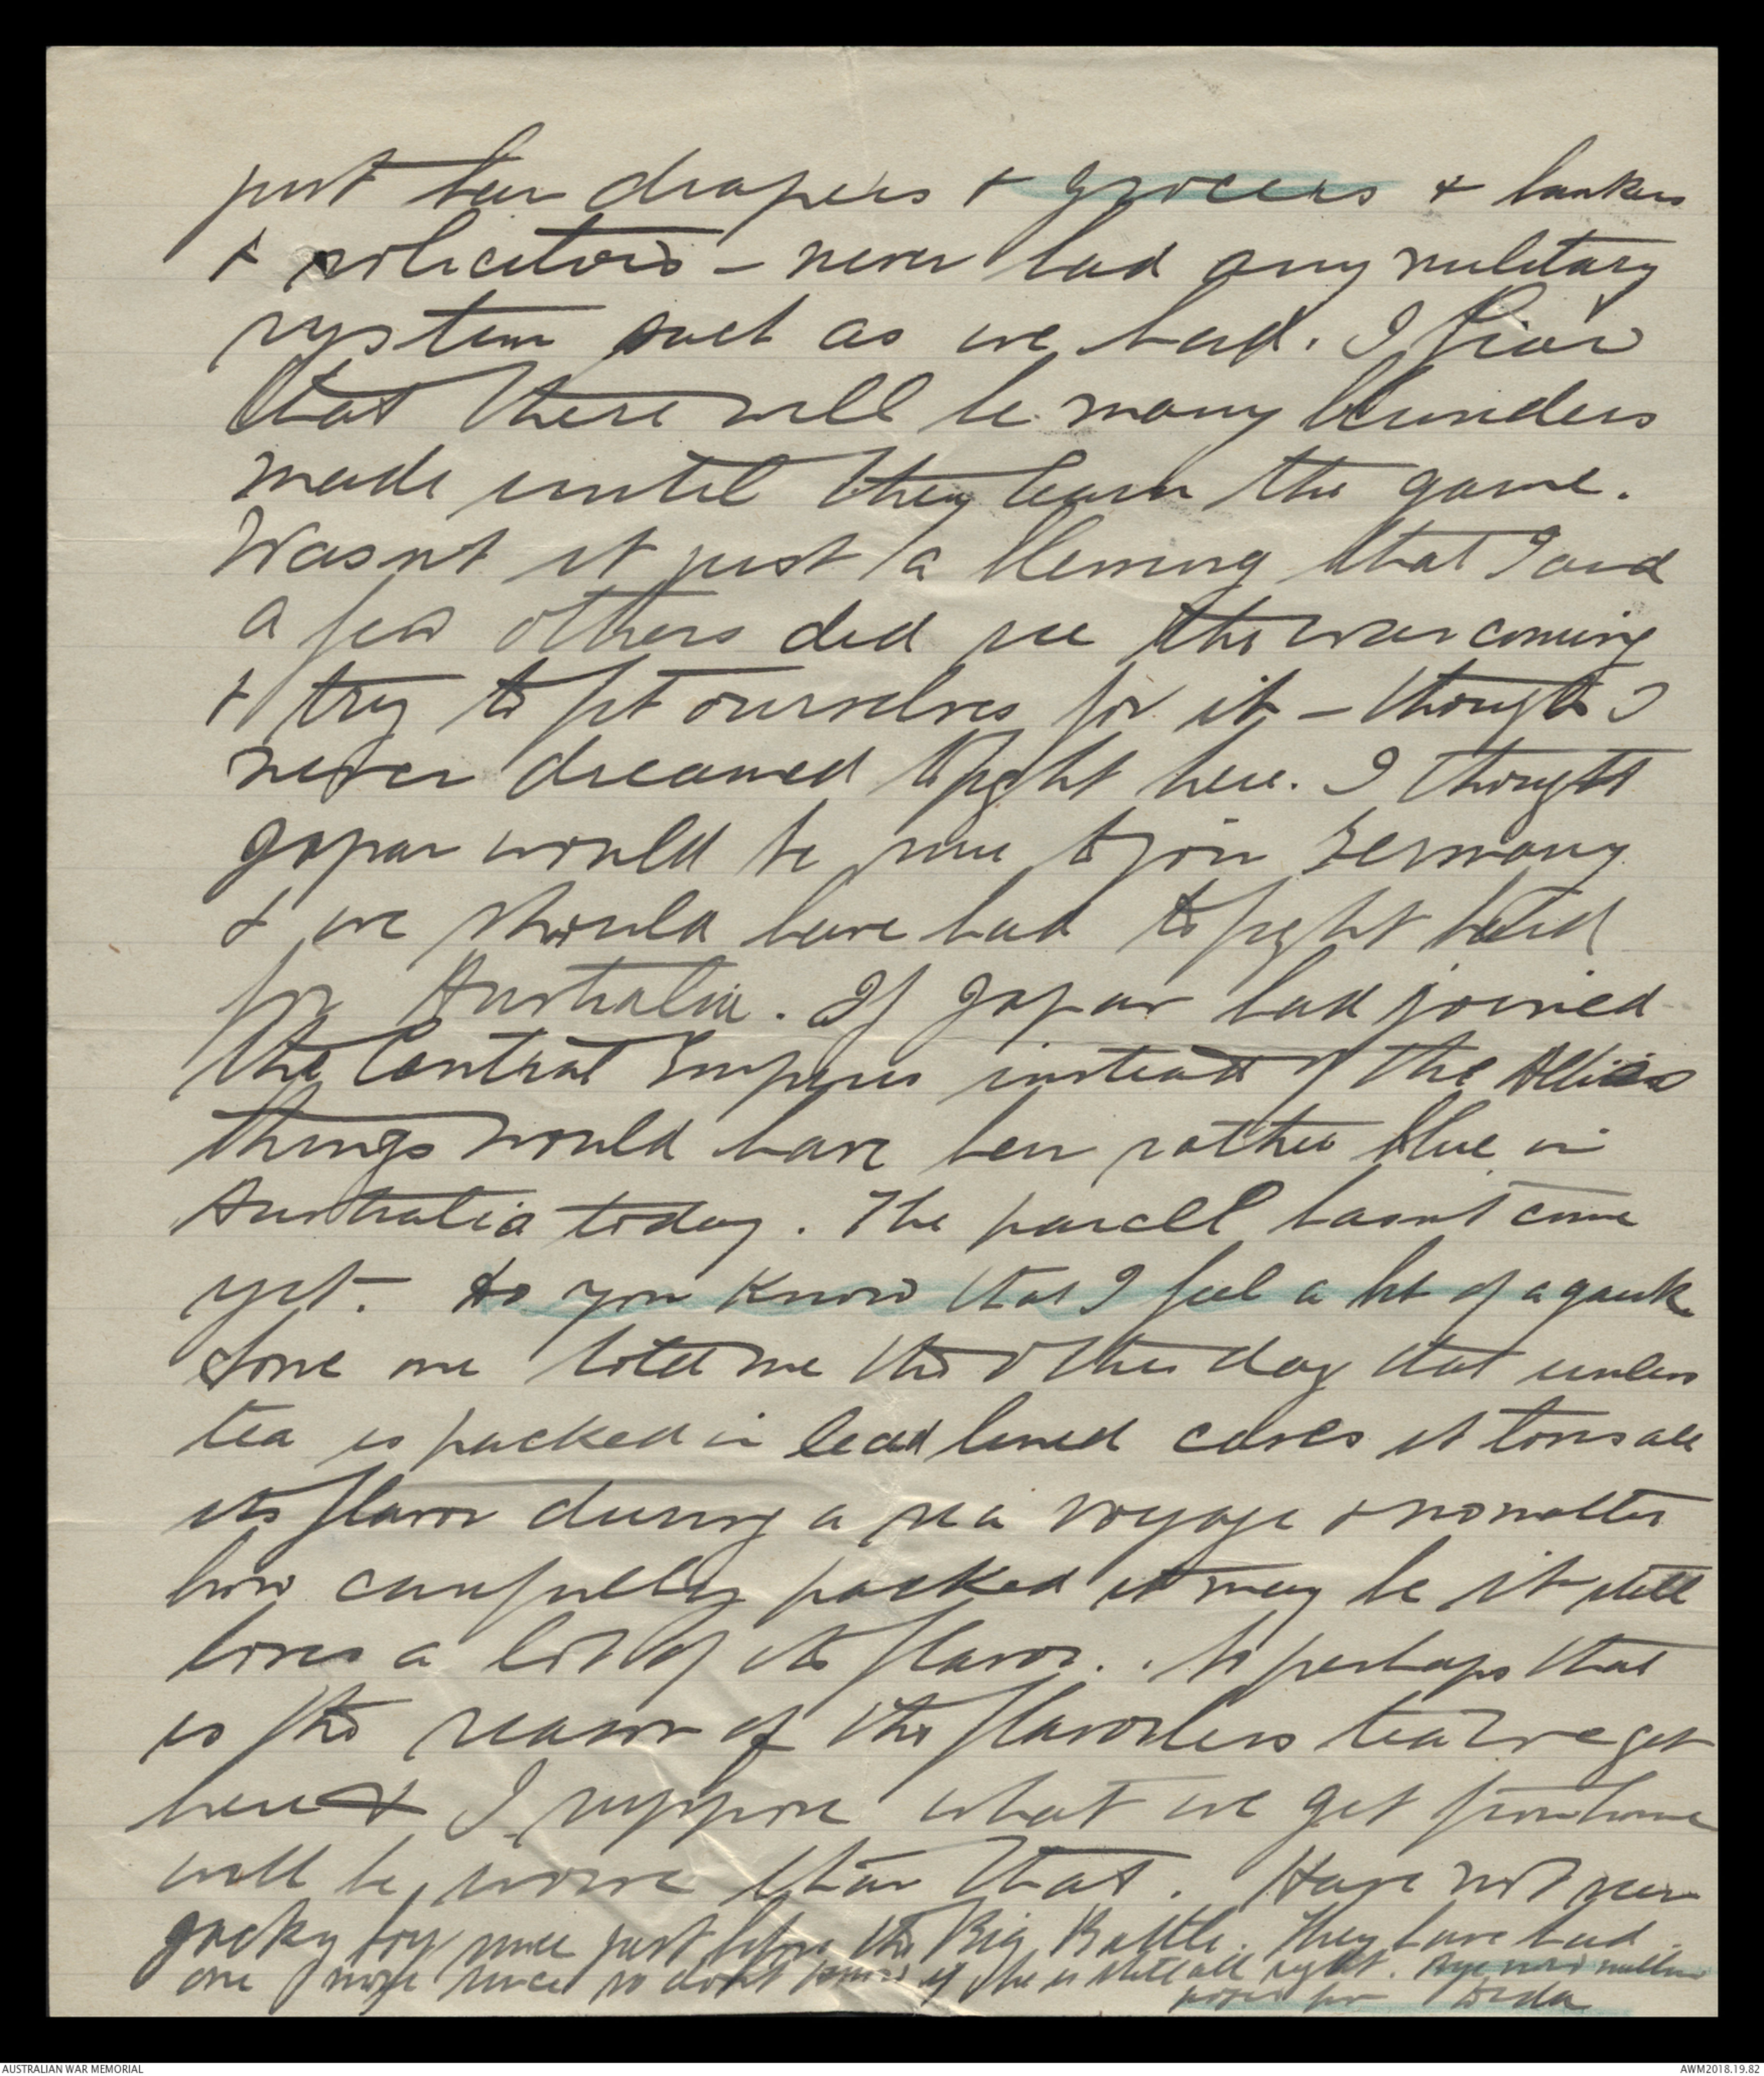 just been drapers & grocers & bankers
& solicitors - never had any military
system such as we had. I fear
that there will be many blunders
made until they learn the game.
Wasnt it just a blessing that I and
a few others did see the war coming
& try to fit ourselves for it - though I
never dreamed to fight here. I thought
Japan would be sure to join Germany
& we should have had to fight hard
for Australia. If Japan had joined
the Central Empires instead of the Allies
things would have been rather blue in
Australia today. The parcel hasnt come
yet. Do you know that I feel a bit of a
Some one told me the other day that unless
tea is packed in lead lined cases it loses all
its flavor during a sea voyage & no matter
how carefully packed it may be it still
loses a lot of its flavor.. So perhaps that
is the reason of the flavorless tea we get
here & I suppose what we get from home
will be worse than that. Have not seen
Jacky boy since just before the Big Battle. They have had
one more since so dont know if he is still all right.